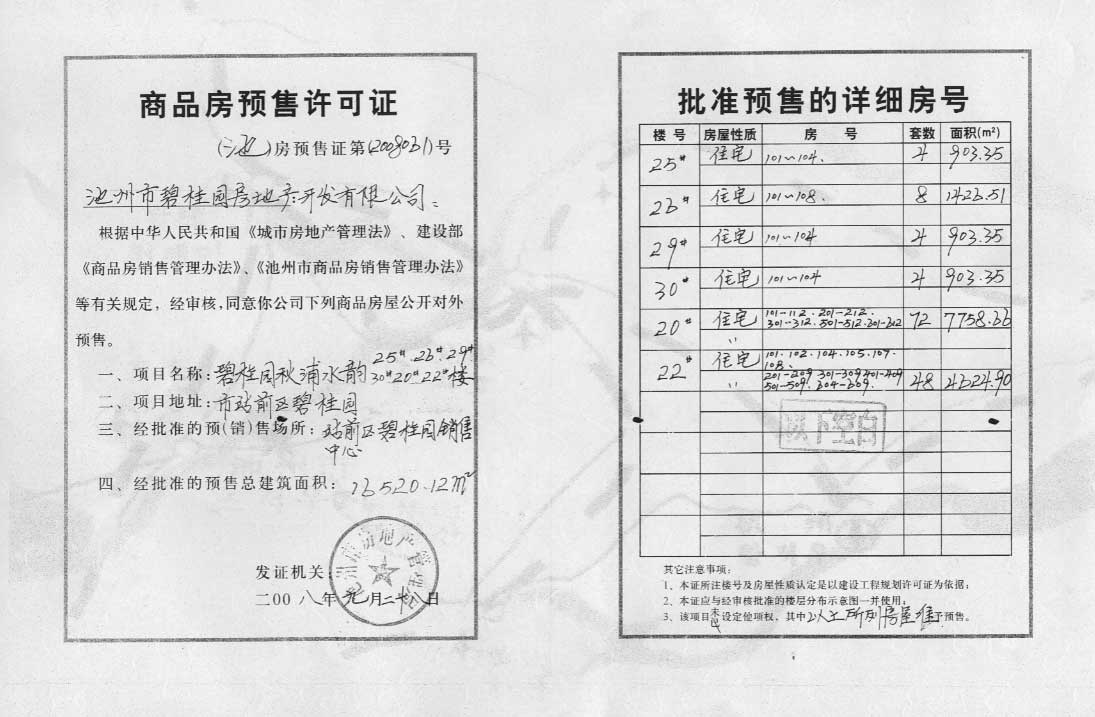 商品房预售许可证
(池)房预售证第(2008031)号
池州市碧桂园房地产开发有限公司:
根据中华人民共和国《城市房地产管理法》、建设部
《商品房销售管理办法》、《池州市商品房销售管理办法》
等有关规定,经审核,同意你公司下列商品房屋公开对外
预售。
一、项目名称:碧桂园秋浦水韵25#.26#.29#
30#20#22#楼
二、项目地址:市站前区碧桂园
三、经批准的预(销)售场所:站前区碧桂园销售
中心
四、经批准的预售总建筑面积:16520.12m²
发证机关:
二00八年九月二十八日
批准预售的详细房号
楼号 房屋性质 房号 套数 面积(m²)
25# 住宅 101~104. 4 903.35
26# 住宅 101~108. 8 1426.51
29# 住宅 101~104 4 903.35
30# 住宅 101~104 4 903.35
20# 住宅 101-112.201-212. 72 7758.66
〃 301-312.501-512.
22# 住宅 101.102.104.105.107.
108.
〃 201-209.301-309 401-409 48 4624.90
501-509.
以下空白
其它注意事项:
1、本证所注楼号及房屋性质认定是以建设工程规划许可证为依据;
2、本证应与经审核批准的楼层分布示意图一并使用;
3、该项目未设定他项权,其中以上所列房屋准予预售。